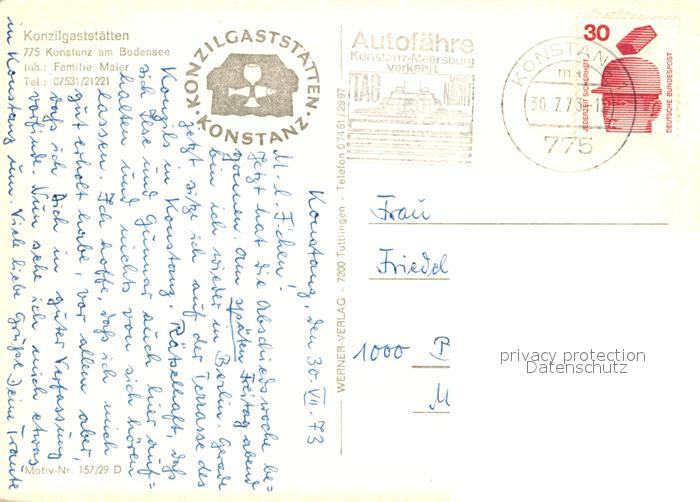 Konzilgaststätten
775 Konstanz am Bodensee
Inh.: Familie Maier
Tel.: 07531/21221
KONZILGASTSTÄTTEN · KONSTANZ ·
Autofähre
Konstanz-Meersburg
verkehrt
TAG UND NACHT
KONSTANZ
30.7.73-1
775
30
JEDERZEIT SICHERHEIT
DEUTSCHE BUNDESPOST
Konstanz, den 30. VII. 73
M. l. F'chen!
Jetzt hat die Abschiedswoche be-
gonnen. Am späten Freitag abend
bin ich wieder in Berlin. Gerade
jetzt sitze ich auf der Terrasse des
Konzils in Konstanz. Rätselhaft, daß
sich Ilse und Gunnar auch hier auf-
halten und nichts von sich hören
lassen. Ich hoffe, daß ich mich
gut erholt habe, vor allem aber,
daß ich Dich in guter Verfassung
vorfinde. Nun sehe ich mich etwas
in Konstanz um. Viele liebe Grüße Deine Traute
WERNER-VERLAG - 7200 Tuttlingen - Telefon 07461/2997
Frau
Friedel
1000 B
M
privacy protection
Datenschutz
Motiv-Nr. 157/29 D